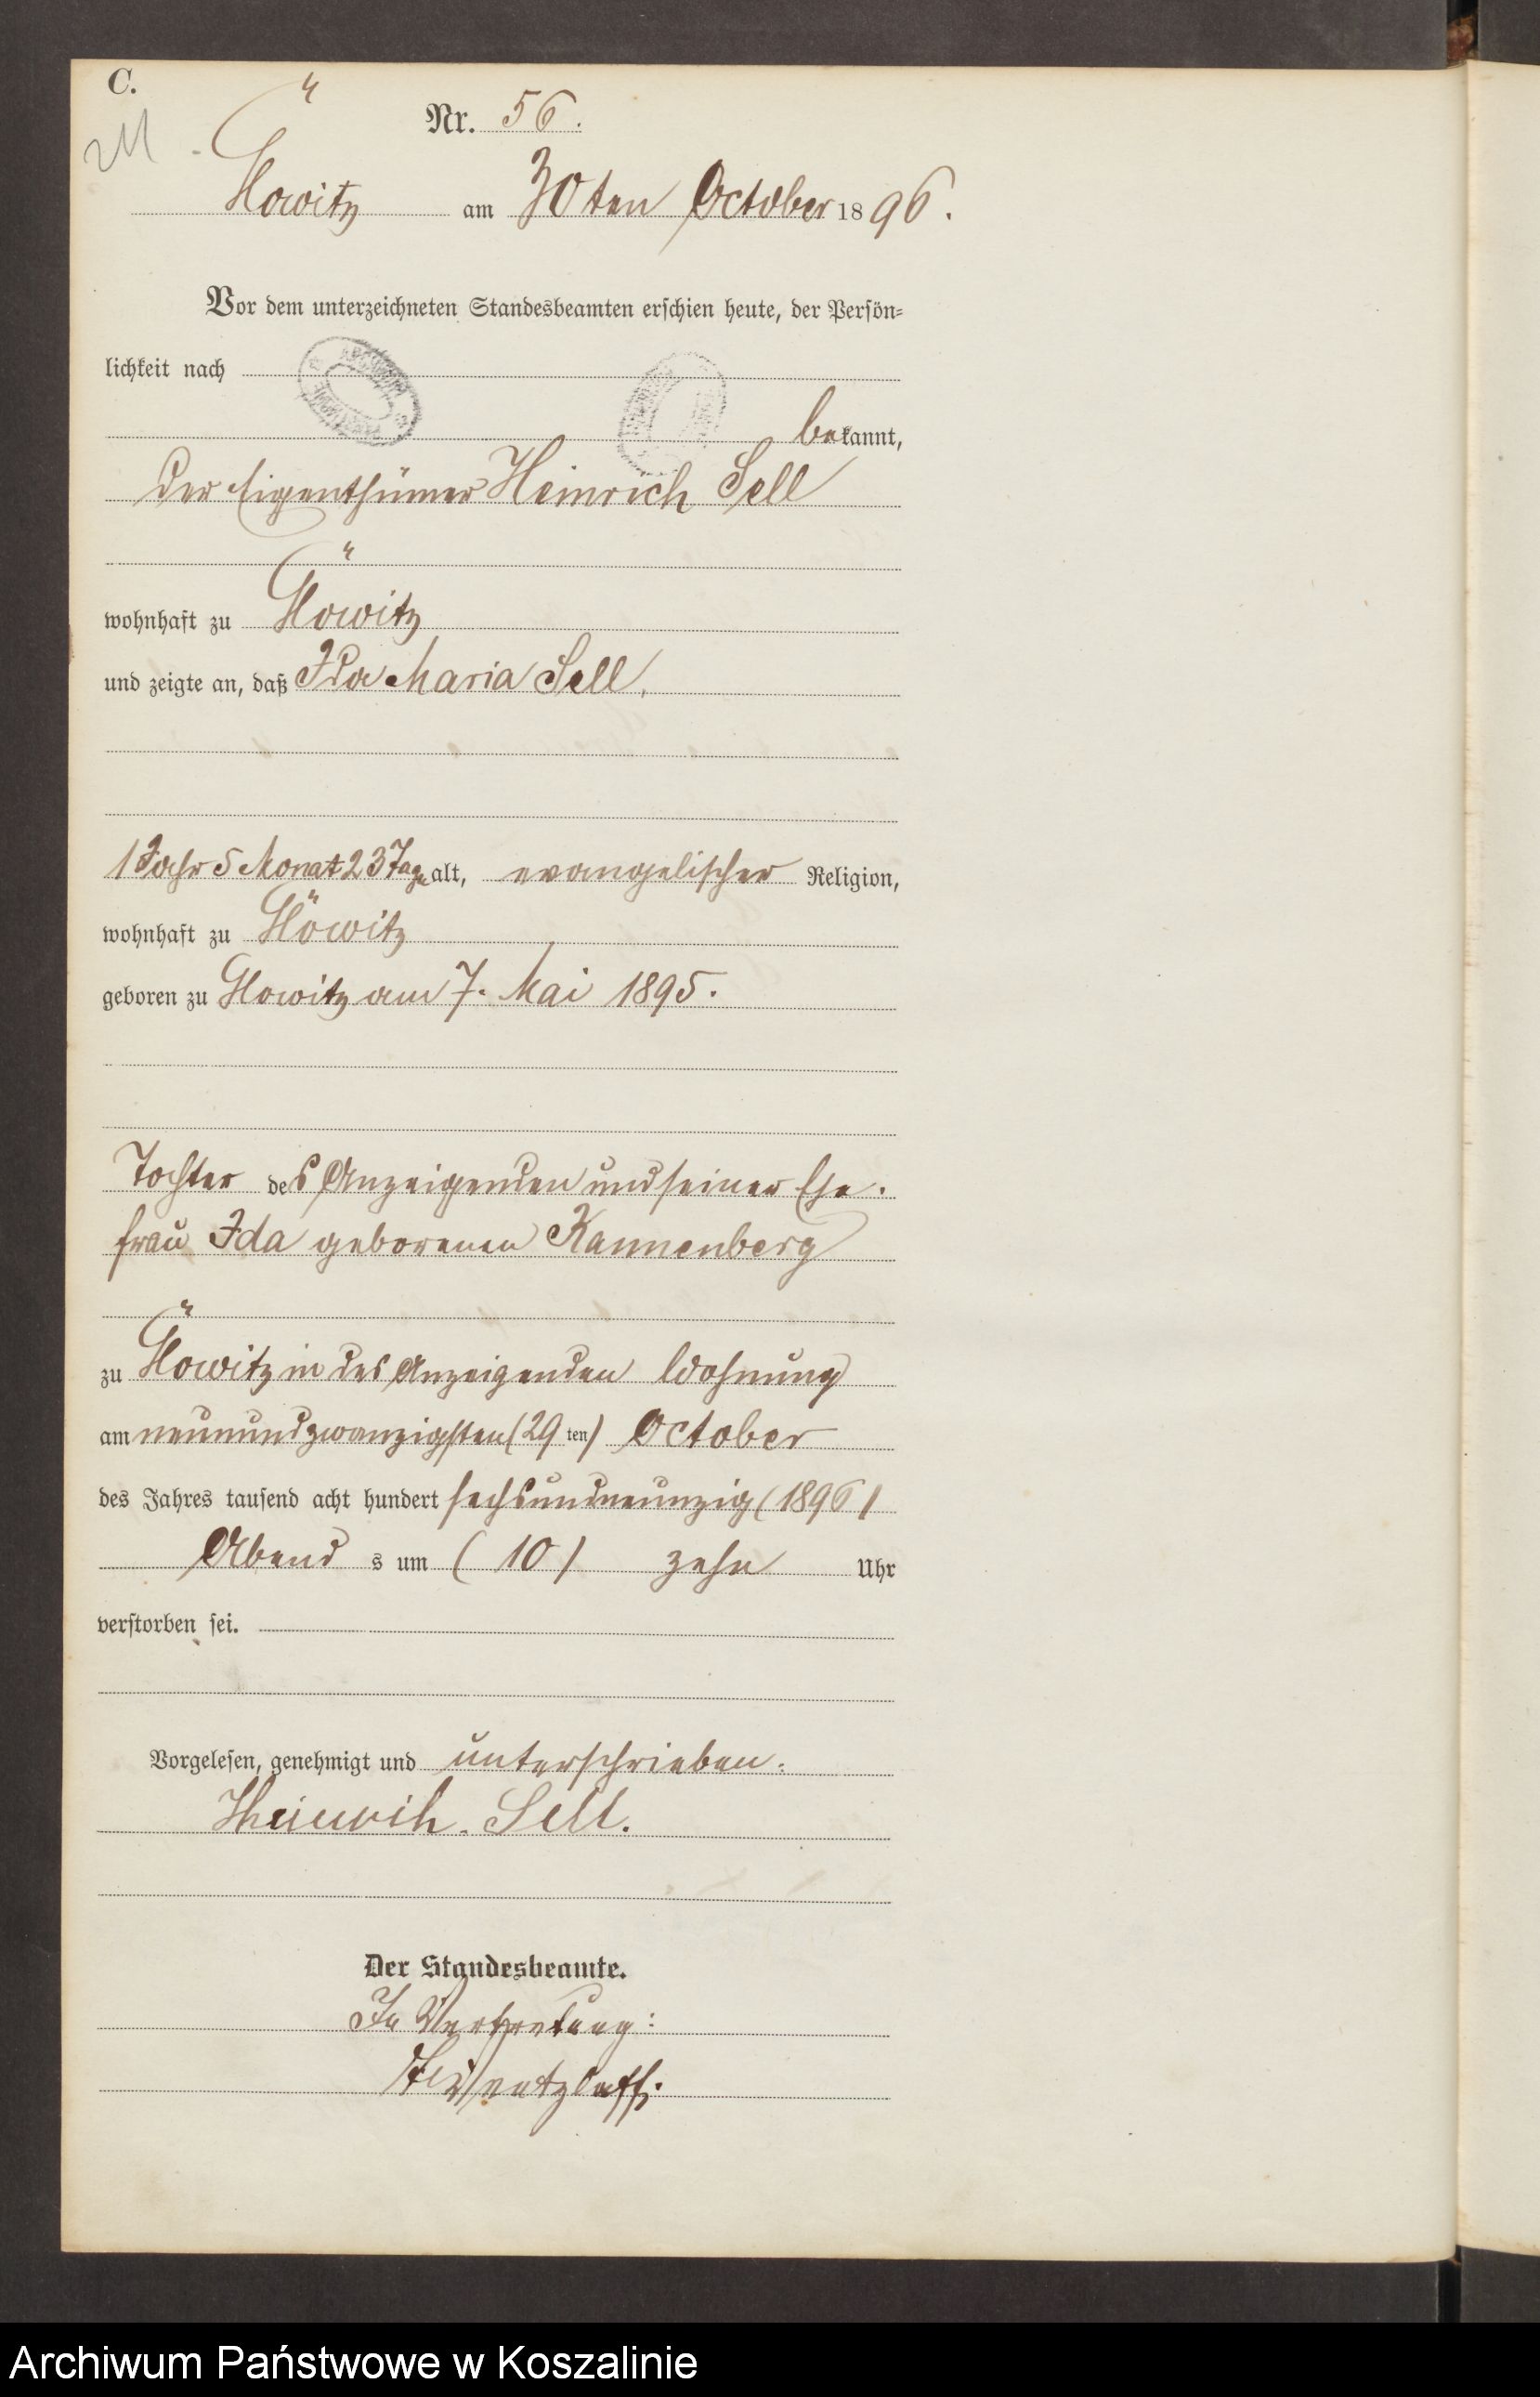 C.
Nr. 56.
Glowitz am 30ten October 1896.
Vor dem unterzeichneten Standesbeamten erschien heute, der Persön=
lichkeit nach
bekannt,
der Eigenthümer Heinrich Sell
wohnhaft zu Glowitz
und zeigte an, daß Ida Maria Sell,
1 Jahr 5 Monat 23 Tage alt, evangelischer Religion,
wohnhaft zu Glowitz
geboren zu Glowitz am 7. Mai 1895.
Tochter des Anzeigenden und seiner Ehe-
frau Ida geborenen Kannenberg
zu Glowitz in des Anzeigenden Wohnung
am neunundzwanzigsten (29ten) October
des Jahres tausend acht hundert sechsundneunzig (1896)
Abend s um (10) zehn Uhr
verstorben sei.
Vorgelesen, genehmigt und unterschrieben.
Heinrih. Sell.
Der Standesbeamte.
In Vertretung:
Archiwum Państwowe w Koszalinie